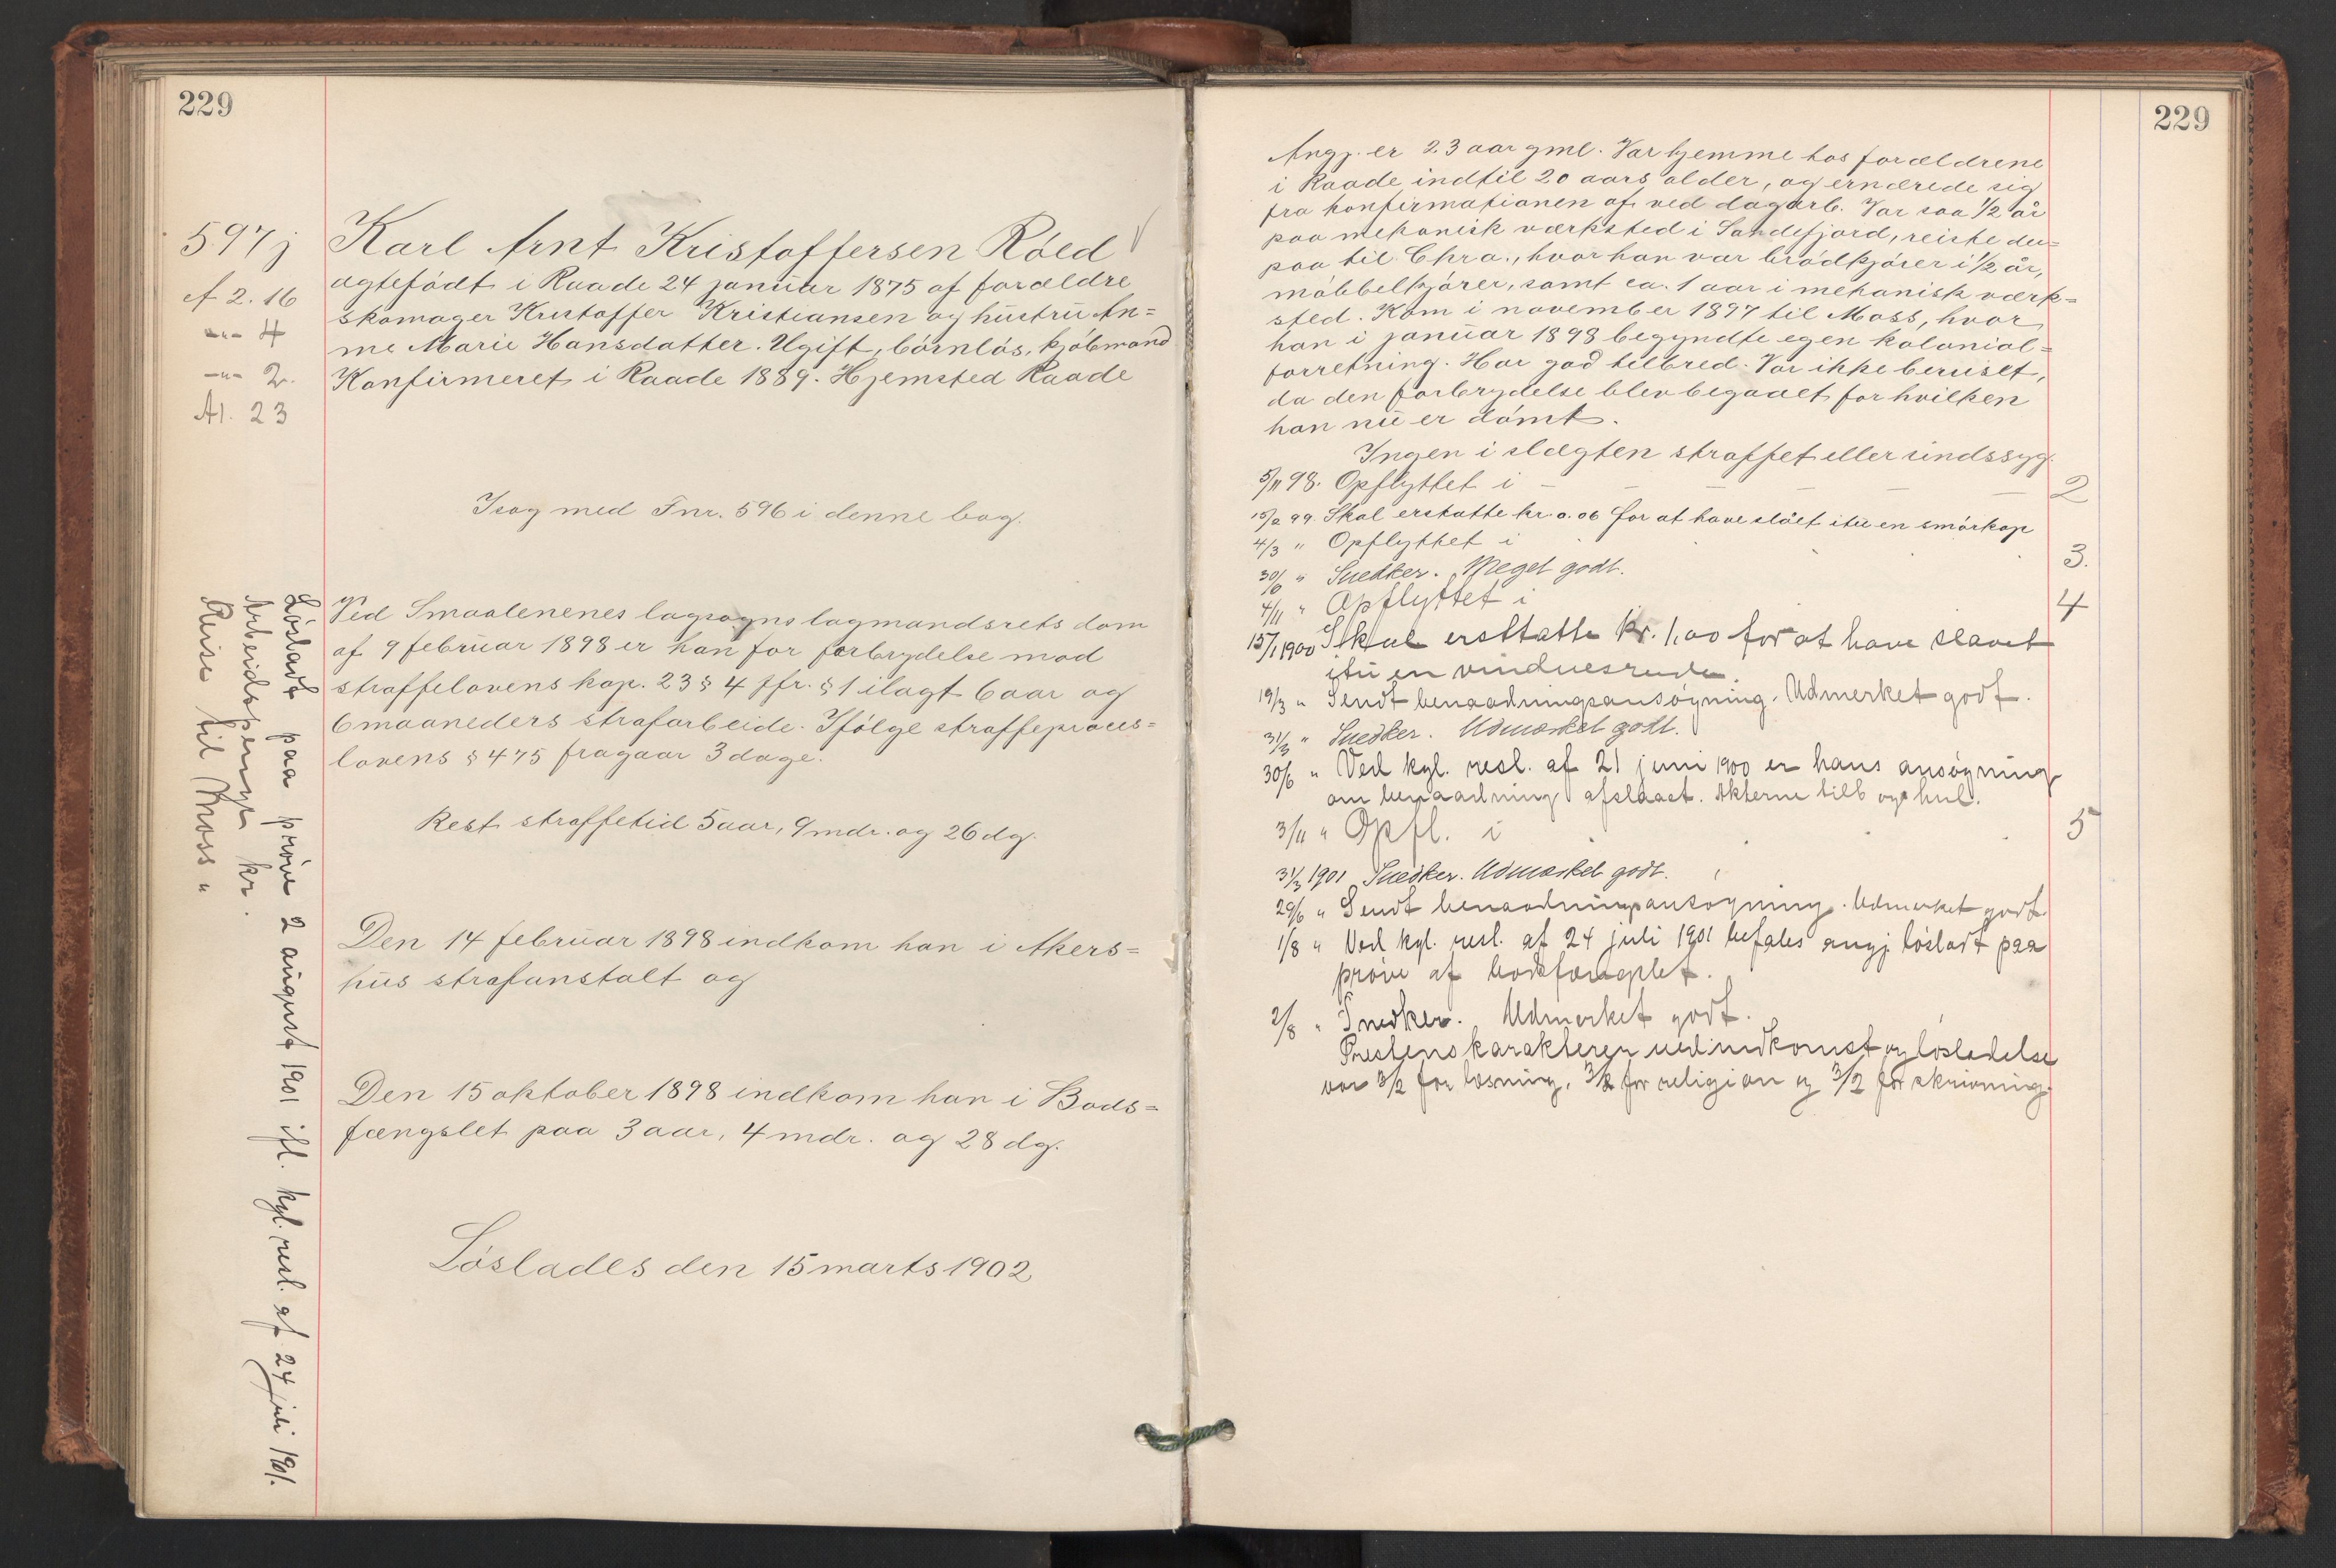 229
597 j
A 2. 16
-"- 4
-"- 2.
A1. 23
Karl Arnt Kristoffersen Röed
ægtefödt i Raade 24 januar 1875 af forældre
skomager Kristoffer Kristiansen og hustru An=
ne Marie Hansdatter. Ugift, börnlös, kjöbmand
Konfirmeret i Raade 1889. Hjemsted Raade
Isag med Fnr. 596 i denne bog.
Ved Smaalenenes lagsogns lagmandsrets dom
af 9 februar 1898 er han for forbrydelse mod
straffelovens kap. 23 § 4 jfr. § 1 ilagt 6 aar og
6 maaneders strafarbeide. Ifölge straffeproces=
lovens § 475 fragaar 3 dage.
Rest straffetid 5 aar, 9 mdr. og 26 dg.
Den 14 februar 1898 indkom han i Akers=
hus strafanstalt og
Den 15 oktober 1898 indkom han i Bods=
fængslet paa 3 aar, 4 mdr. og 28 dg.
Löslades den 15 marts 1902
Lösladt paa pröve 2 august 1901 ifl. kgl. resl. af 24 juli 1901.
Arbeidspenge kr.
Reise til Moss "
229
Angj. er 23 aar gml. Var hjemme hos forældrene
i Raade indtil 20 aars alder, og ernærede sig
fra konfirmationen af ved dagarb. Var saa 1/2 år
paa mekanisk værksted i Sandefjord, reiste der=
paa til Chra., hvor han var brödkjörer i 1/2 år,
möbbelkjörer, samt ca. 1 aar i mekanisk værk=
sted. Kom i november 1897 til Moss, hvor
han i januar 1898 begyndte egen kolonial=
forretning. Har god helbred. Var ikke beruset,
da den forbrydelse blev begaaet for hvilken
han nu er dömt.
Ingen i slægten straffet eller sindssyg.
5/11 98. Opflyttet i - - - - - 2
15/2 99. Skal erstatte kr. 0.06 for at have slået itu en smörkop
4/3 " Opflyttet i 3.
30/6 " Snedker. Meget godt.
4/11 " Opflyttet i 4
15/1 1900 Skal ersttatte kr. 1,00 for at have slaaet
itu en vinduesrude.
19/3 " Sendt benaadningsansögning. Udmerket godt.
31/3 " Snedker. Udmærket godt.
30/6 " Ved kgl. resl. af 21 juni 1900 er hans ansögning
om benaadning afslaaet. Akterne tilb og hul.
3/11 " Opfl. i 5
31/3 1901 Snedker. Udmærket godt.
29/6 " Sendt benaadningsansögning. Udmerket godt.
1/8 " Ved kgl. resl. af 24 juli 1901 befales angj lösladt paa
pröve af bodsfængslet.
2/8 " Snedker. Udmerket godt.
Prestens karakterer ved indkomst og lösladelse
var 3/2 for læsning, 3/2 for religion og 3/2 for skrivning.